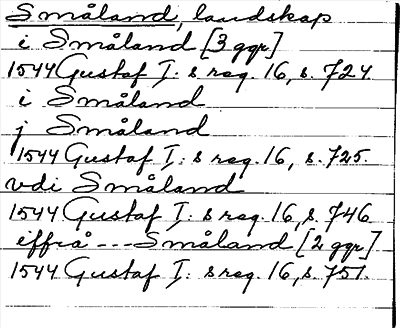 Småland, landskap
i Småland [3 ggr]
1544 Gustaf I: s reg. 16, s. 724.
i Småland
j Småland
1544 Gustaf I: s reg. 16, s. 725.
vdi Småland
1544 Gustaf I: s reg. 16, s. 746
iffrå --- Småland [2 ggr]
1544 Gustaf I: s reg. 16, s. 751.